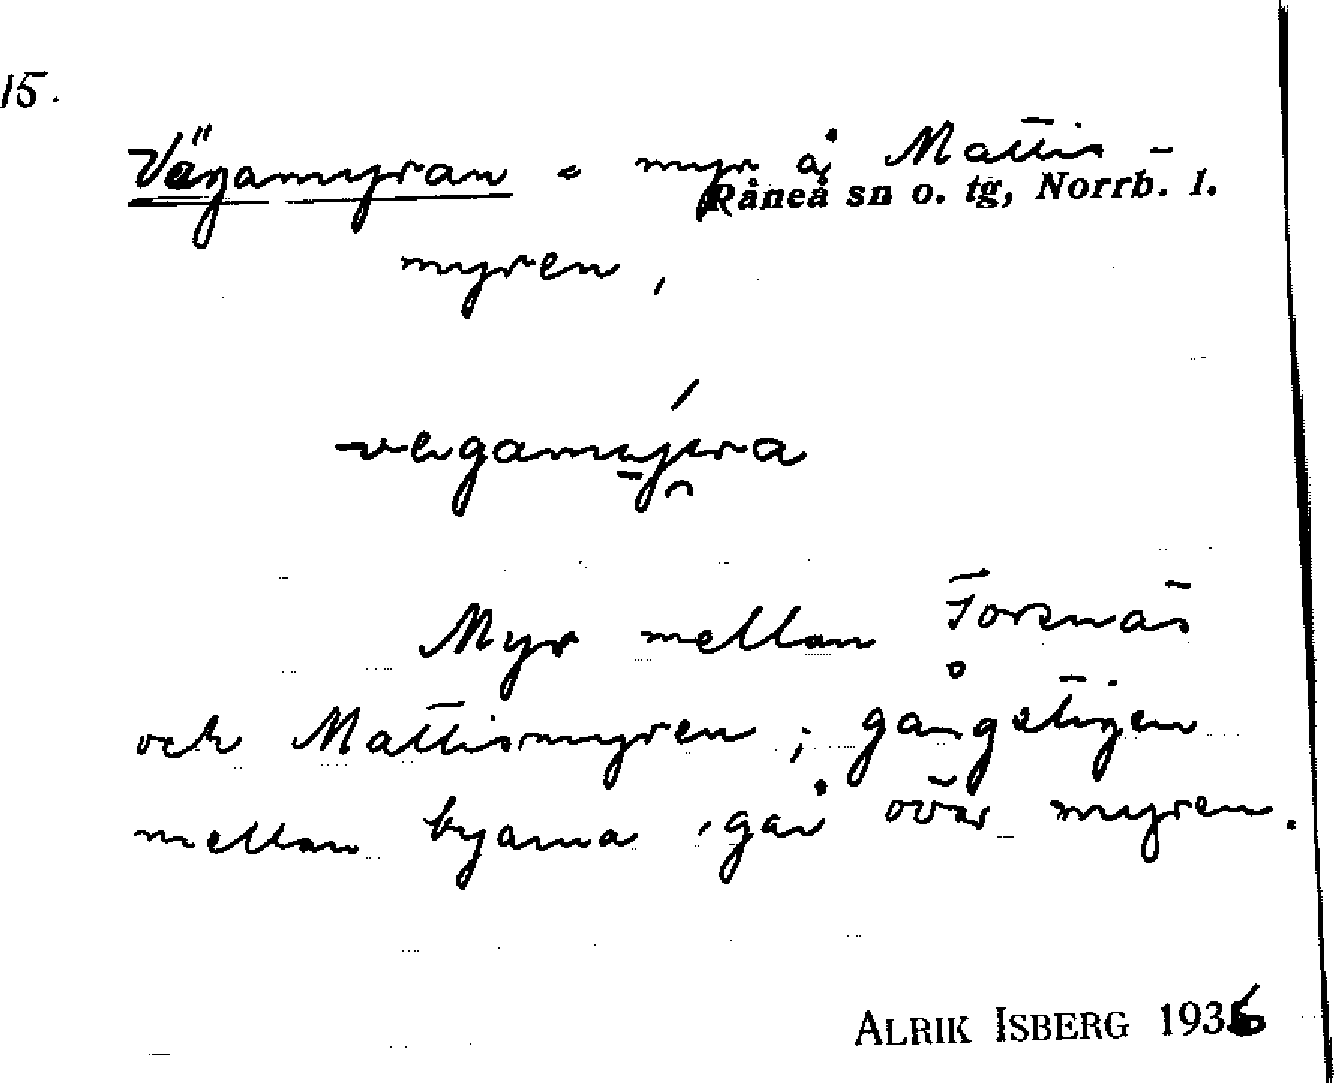 15.
Vägamyran - myr å Mattis-
Råneå sn o. tg, Norrb. l.
myren,
vegamyra
Myr mellan Forsnäs
och Mattismyren; gångstigen
mellan byarna går över myren.
ALRIK ISBERG 1936